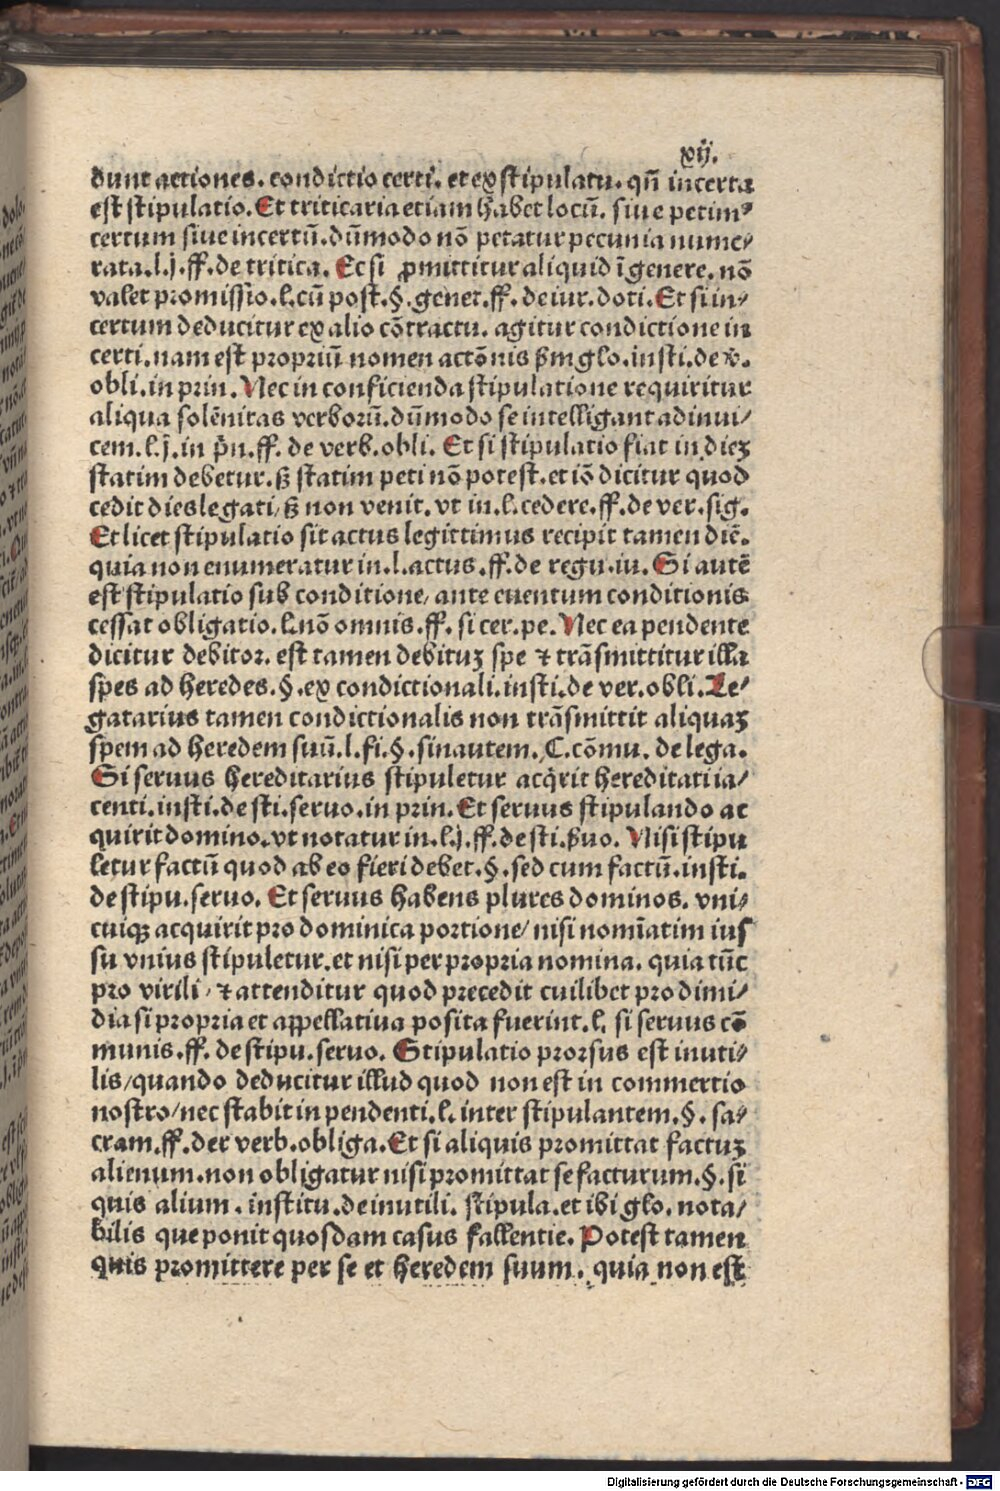 xij.
dunt actiones. condictio certi. et ex stipulatu. qn̄ incerta
est stipulatio. Et triticaria etiam habet locū. siue petim⸗
certum siue incertū. dūmodo nō petatur pecunia nume⸗
rata. l.j. ff. de tritica. Et si ꝓmittitur aliquid ī genere. nō
valet promissio. l. cū post. §. gener. ff. de iur. doti. Et si in⸗
certum deducitur ex alio cōtractu. agitur condictione in
certi. nam est propriū nomen actōnis ẜm glo. insti. de v̄.
obli. in prin. Nec in conficienda stipulatione requiritur
aliqua solēnitas verborū. dūmodo se intelligant adinui/
cem. l. j. in p̄n. ff. de verb. obli. Et si stipulatio fiat in dieʒ
statim debetur. ẜ statim peti nō potest. et iō dicitur quod
cedit dies legati/ ẜ non venit. vt in. l. cedere. ff. de ver. sig.
Et licet stipulatio sit actus legittimus recipit tamen diē.
quia non enumeratur in. l. actus. ff. de regu. iu. Si autē
est stipulatio sub conditione/ ante euentum conditionis
cessat obligatio. l. nō omnis. ff. si cer. pe. Nec ea pendente
dicitur debitor. est tamen debituʒ spe ⁊ trāsmittitur illa
spes ad heredes. §. ex condictionali. insti. de ver. obli. Le⸗
gatarius tamen condictionalis non trāsmittit aliquaʒ
spem ad heredem suū. l. fi. §. sinautem. C. cōmu. de lega.
Si seruus hereditarius stipuletur acq̄rit hereditati ia/
centi. insti. de sti. seruo. in prin. Et seruus stipulando ac
quirit domino. vt notatur in. l. j. ff. de sti. ẜuo. Nisi stipu
letur factū quod ab eo fieri debet. §. sed cum factū. insti.
de stipu. seruo. Et seruus habens plures dominos. vni⸗
cuiqꝫ acquirit pro dominica portione/ nisi nomīatim ius
su vnius stipuletur. et nisi per propria nomina. quia tūc
pro virili/ ⁊ attenditur quod precedit cuilibet pro dimi/
dia si propria et appellatiua posita fuerint. l. si seruus cō
munis. ff. de stipu. seruo. Stipulatio prorsus est inuti⸗
lis/ quando deducitur illud quod non est in commertio
nostro/ nec stabit in pendenti. l. inter stipulantem. §. sa⸗
cram. ff. der verb. obliga. Et si aliquis promittat factuʒ
alienum. non obligatur nisi promittat se facturum. §. si
quis alium. institu. de inutili. stipula. et ibi glo. nota/
bilis que ponit quosdam casus fallentie. Potest tamen
quis promittere per se et heredem suum. quia non est
Digitalisierung gefördert durch die Deutsche Forschungsgemeinschaft - DFG